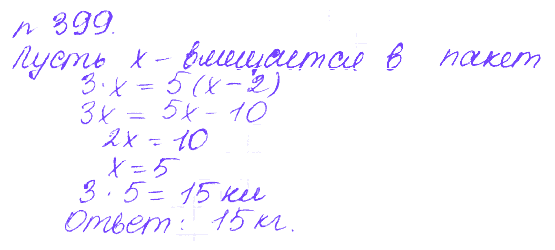 n 399.
Пусть x - вмещается в пакет
3·x = 5(x-2)
3x = 5x-10
2x = 10
x = 5
3·5 = 15 км
Ответ: 15 кг.